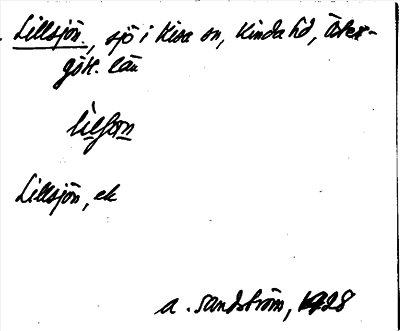 Lillsjön, sjö i Kisa sn, Kinda hd, Öster-
göt. län
lilʃøn
Lillsjön, ek
A. Sandström, 1928